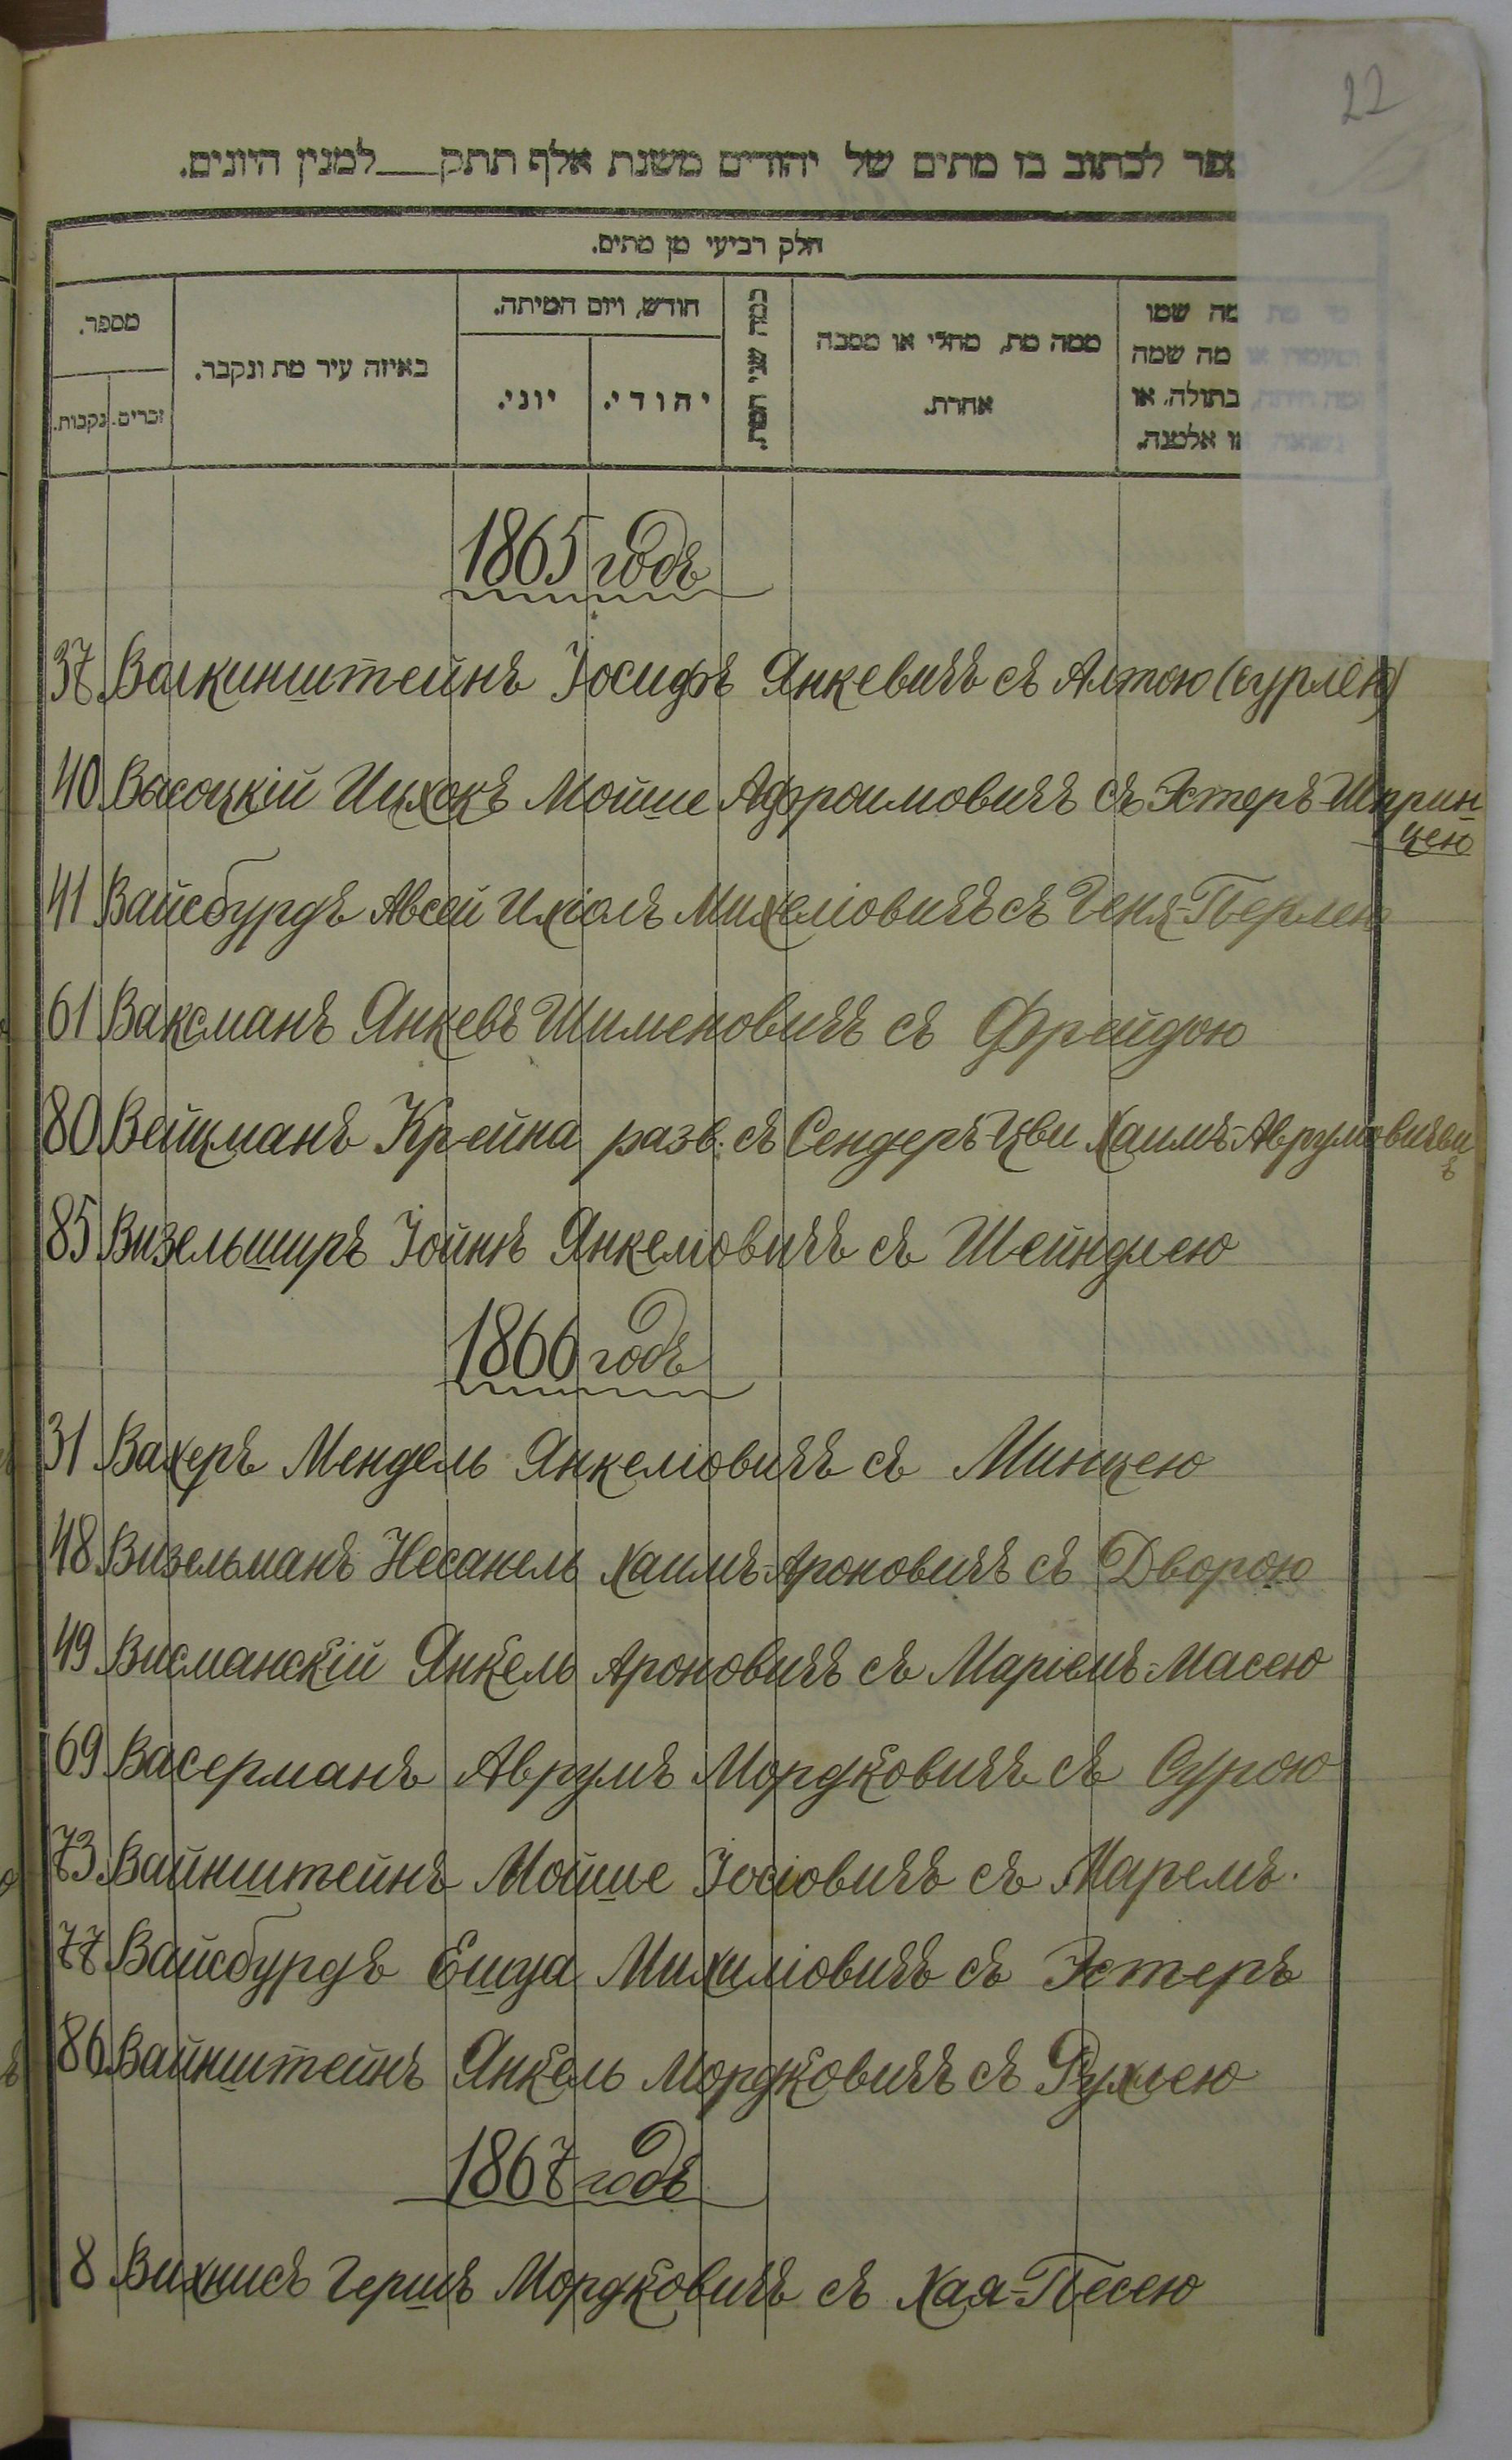 22
ספר לכתוב בו מתים של יהודים משנת אלף תתק למנין היונים.
חלק רביעי מן מתים.
מספר.
זכרים.
נקבות.
באיזה עיר מת ונקבר.
חודש, ויום המיתה.
יהודי.
יוני.
כמה שני המת.
ממה מת, מחלי או מסבה
אחרת.
מי מת מה שמו
ומעמדו או מה שמה
ומה היתה, בתולה, או
נשואה או אלמנה.
1865 годъ
37 Валкинштейнъ Іосифъ Янкевичъ съ Алтою (сурлею)
40 Высоцкій Ицхокъ Мойше Афроимовичъ съ Эстеръ-Шприн-
цею
41 Вайсбурдъ Авсей Ихіолъ Михеліовичъ съ Геня-Перлею
61 Ваксманъ Янкевъ Шименовичъ съ Фрейдою
80 Вейцманъ Крейна разв. съ Сендеръ-Цви Хаимъ-Аврумовичѳи
ъ
85 Визельширъ Іойнъ Янкеліовичъ съ Шейндлею
1866 годъ
31 Вахеръ Мендель Янкеліовичъ съ Минцею
48 Визельманъ Несанель Хаимъ-Ароновичъ съ Дворою
49 Висманскій Янкель Ароновичъ съ Маріемъ-Масею
69 Васерманъ Аврумъ Мордковичъ съ Сурою
73 Вайнштейнъ Мойше Іосіовичъ съ Маремъ.
77 Вайсбурдъ Ешуа Михиліовичъ съ Эстеръ
86 Вайнштейнъ Янкель Мордковичъ съ Рухлею
1867 годъ
8 Вихнисъ Гершъ Мордковичъ съ Хая-Песею